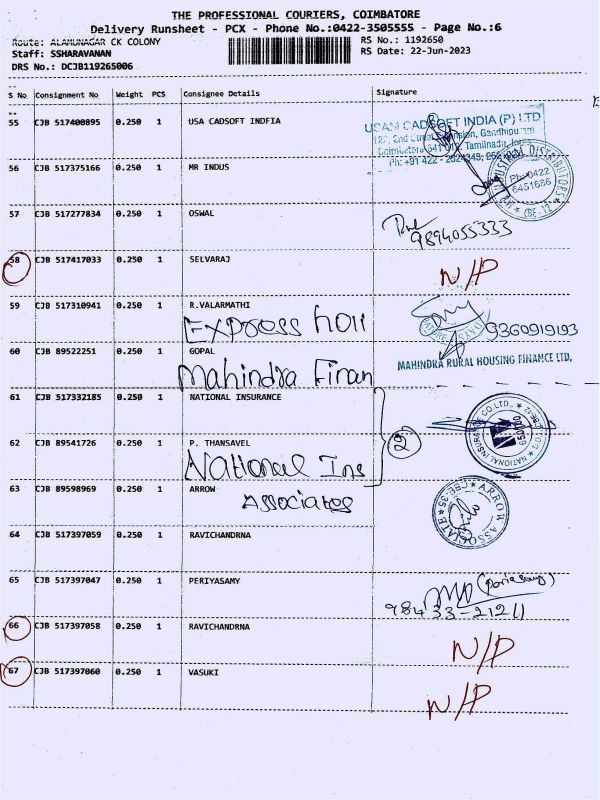 THE PROFESSIONAL COURIERS, COIMBATORE
Delivery Runsheet - PCX - Phone No.:0422-3505555 - Page No.:6
Route: ALAMUNAGAR CK COLONY
RS No.: 1192650
Staff: SSHARAVANAN
RS Date: 22-Jun-2023
DRS No.: DCJB119265006
S No Consignment No Weight PCS Consignee Details Signature
55 CJB 517400895 0.250 1 USA CADSOFT INDFIA
CADSOFT INDIA (P) LTD
56 CJB 517375166 0.250 1 MR INDUS
Ph: 0422
6451686
57 CJB 517277834 0.250 1 OSWAL
9894055333
58 CJB 517417033 0.250 1 SELVARAJ
N/P
59 CJB 517310941 0.250 1 R.VALARMATHI
Express
9360919193
60 CJB 89522251 0.250 1 GOPAL
Mahindra Finan
MAHINDRA RURAL HOUSING FINANCE LTD.
61 CJB 517332185 0.250 1 NATIONAL INSURANCE
NATIONAL INSURANCE CO LTD.
2
62 CJB 89541726 0.250 1 P. THANSAVEL
National Ins
63 CJB 89598969 0.250 1 ARROW
Associates
ARROW ASSOCIATE CBE-35
64 CJB 517397059 0.250 1 RAVICHANDRNA
65 CJB 517397047 0.250 1 PERIYASAMY
66 CJB 517397058 0.250 1 RAVICHANDRNA
N/P
67 CJB 517397060 0.250 1 VASUKI
N/P